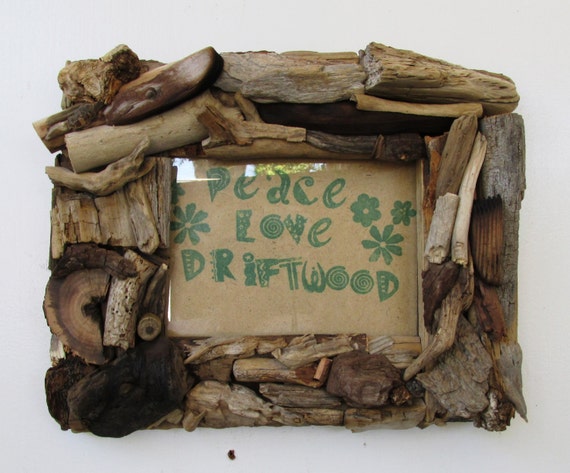 Peace
Love
DRiFTWOOD